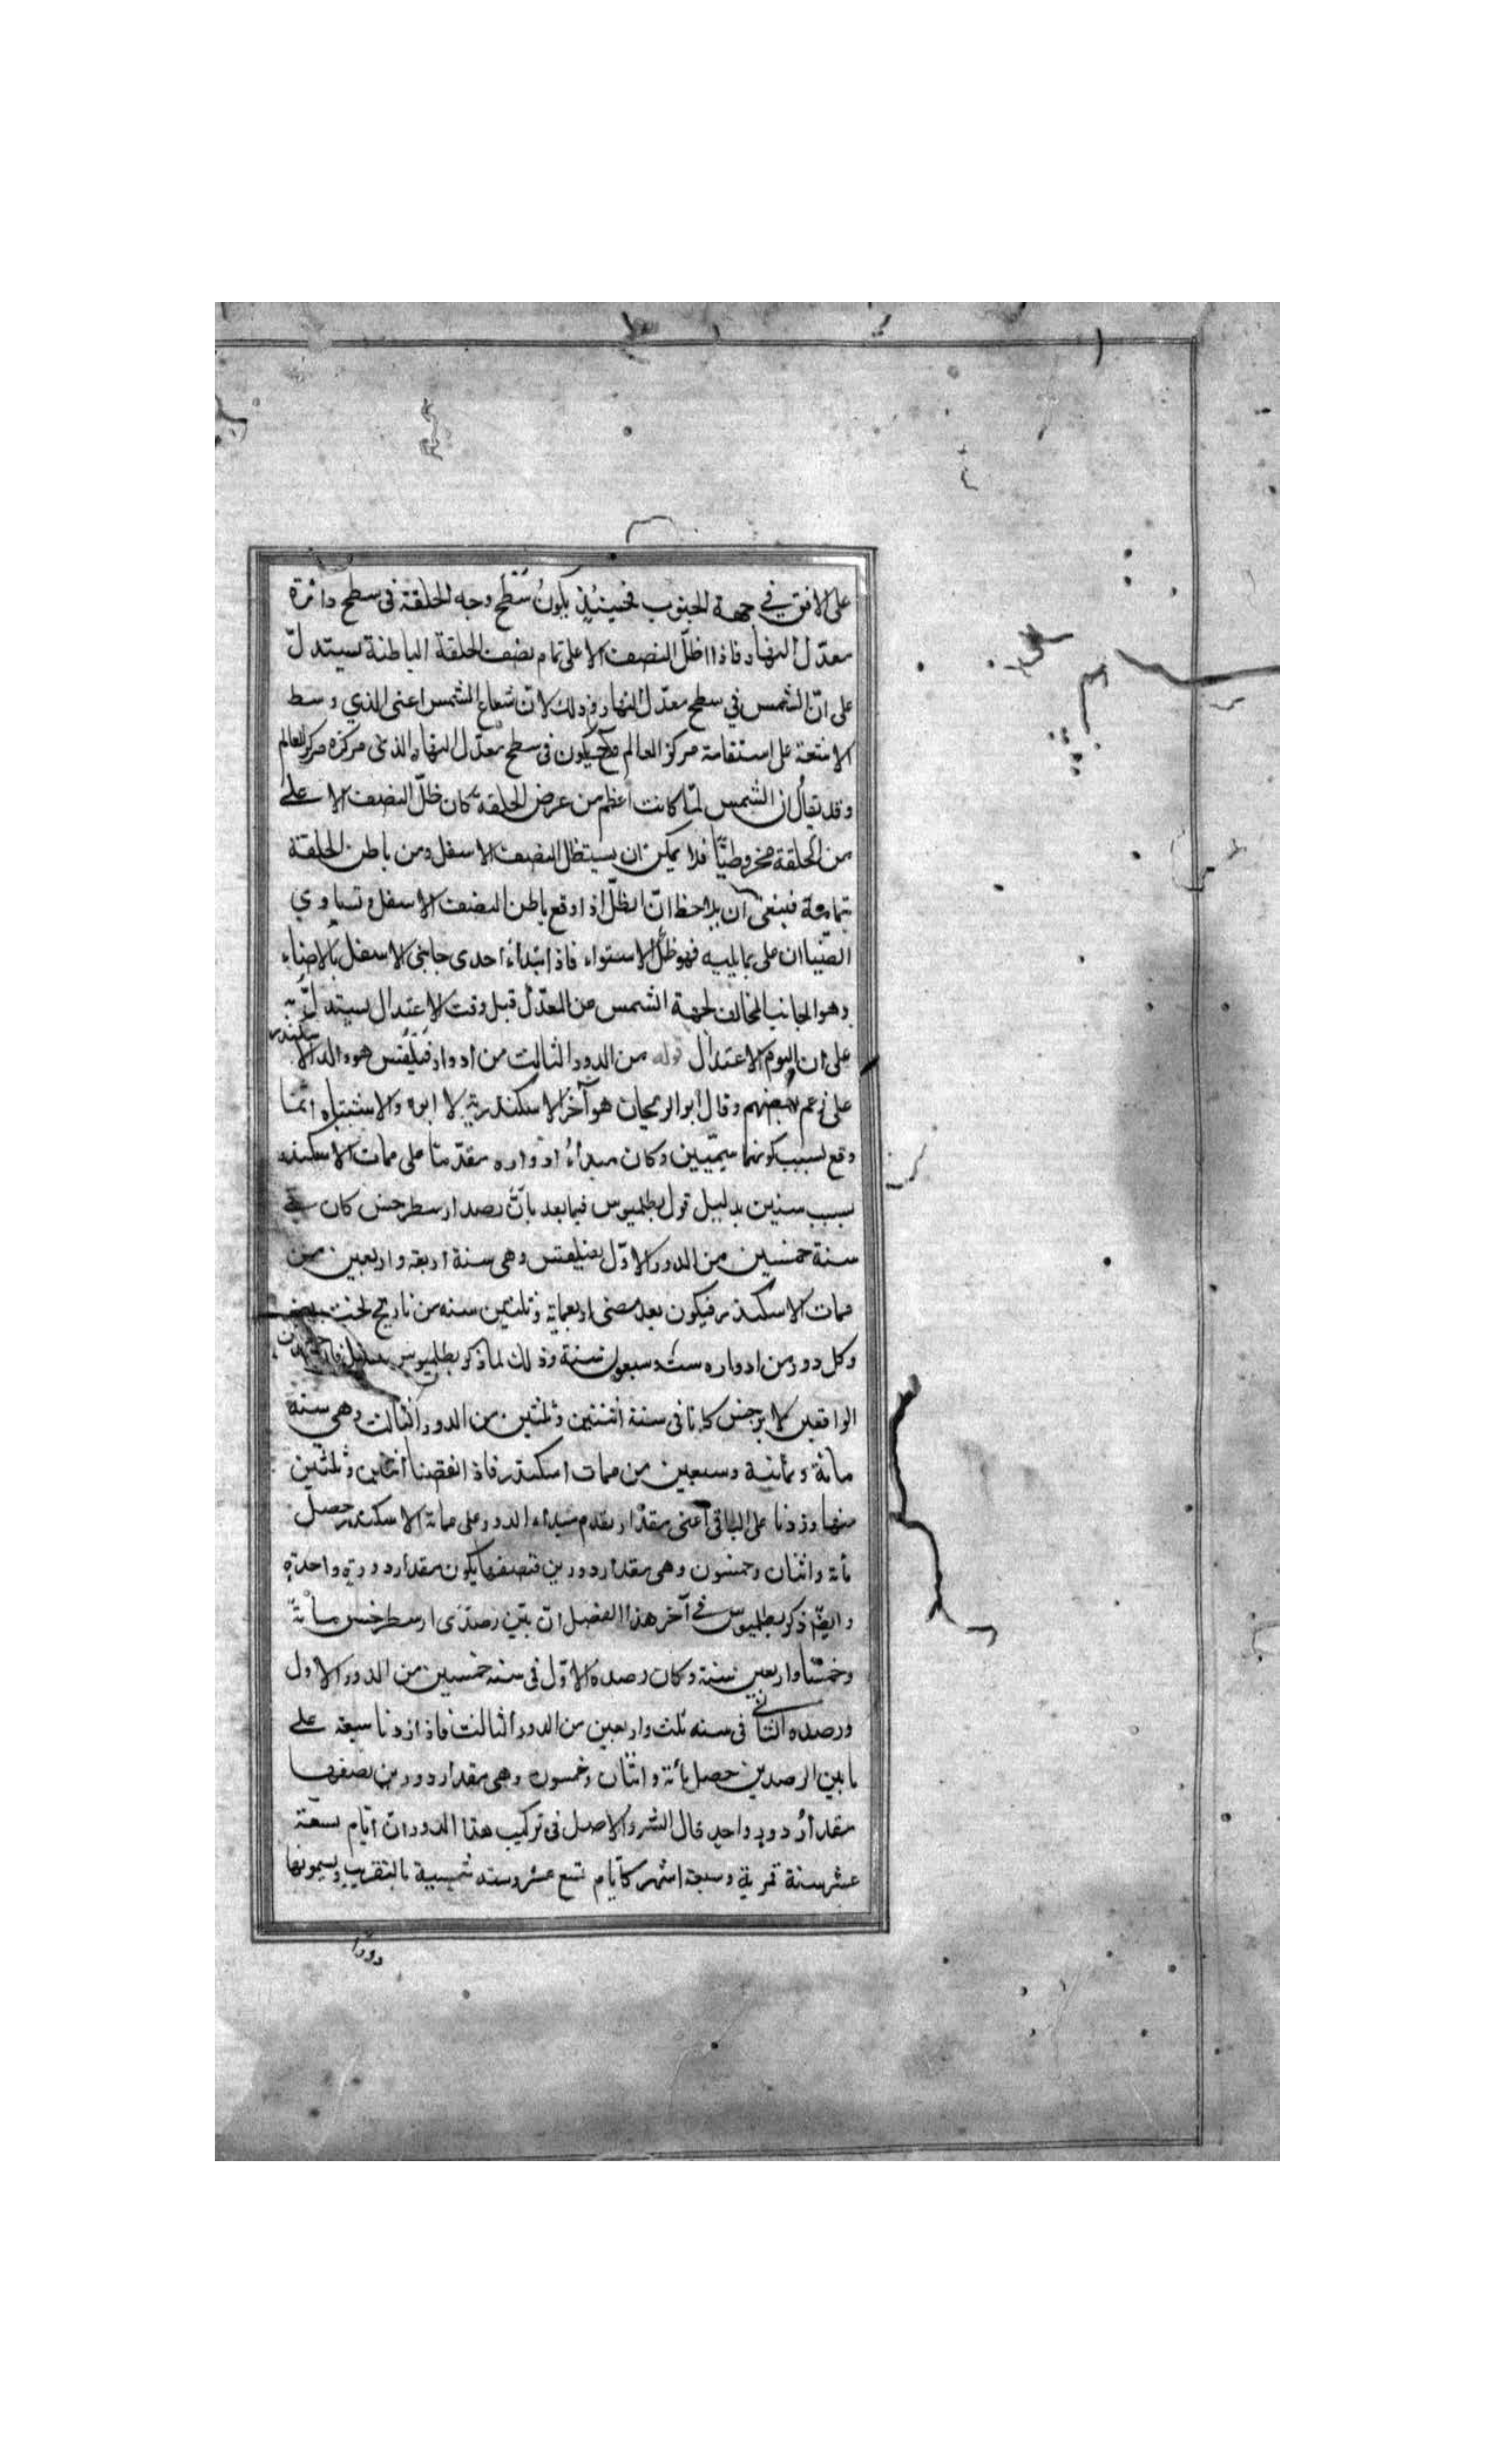 على الافق في جهة الجنوب فحينئذ يكون سطح وجه الحلقة فى سطح دائرة
معدّل النهار فاذا اظلّ النصف الاعلى تمام نصف الحلقة الباطنة يستدلّ
على انّ الشمس في سطح معدّل النهار وذلك لانّ شعاع الشمس اعنى الذي وسط
الاشعة على استقامة مركز العالم فح يكون فى سطح معدّل النهار الذى مركزه مركز العالم
وقد يقال ان الشمس لمّا كانت اعظم من عرض الحلقة كان ظلّ النصف الاعلى
من الحلقة مخروطيّا فلا يمكن ان يستظل النصف الاسفل ومن باطن الحلقة
بتمامه فينبغى ان يلاحظ انّ الظلّ اذا وقع باطن النصف الاسفل وتساوي
الضياان على ما يليه فهو ظلّ الاستواء فاذا ابتداء احدى جانبى الاسفل بالاضاء
وهو الجانب المخالف لجهة الشمس من المعدّل قبل وقت الاعتدال يستدلّ به
على ان اليوم الاعتدال قوله من الدور الثالث من ادوار فيلفس هو والد الاسكندر
على زعم بعضهم وقال ابو الريحان هو آخر الاسكندرية لا ابوه والاشتباه انّما
وقع لسبب كونهما سميّين وكان مبداء ادواره مقدّما على ممات الاسكندر
بسبب سنين بدليل قول بطلميوس فيما بعد بانّ رصد ارسطرخس كان في
سنة خمسين من الدور الاوّل بفيلفس وهى سنة اربعة واربعين من
ممات الاسكندر فيكون بعد مضى اربعماية وثلثين سنه من تاريخ بخت نصر
وكل دور من ادواره ست وسبعون سنة وذلك لما ذكر بطلميوس
الواقعين لابرخس كانا فى سنة اثنتين وثلثين من الدور الثالث وهى سنه
مائة وثمانية وسبعين من ممات اسكندر فاذا نقصنا اثنين وثلثين
منها وزدنا على الباقى اعنى مقدار تقدم مبداء الدور على مماة الاسكندر حصل
مأة واثنان وخمسون وهى مقدار دورين فنصفها يكون مقدار دورة واحدة
وايضّ ذكر بطلميوس في آخر هذا الفصل انّ بين رصدى ارسطرخس مائة
وخمسا واربعين سنة وكان رصده الاوّل فى سنه خمسين من الدور الاول
ورصده الثاني فى سنه ثلث واربعين من الدور الثالث فاذا زدنا سبعة على
ما بين الرصدين حصل مأة واثنان وخمسون وهى مقدار دورين نصفها
مقدار دور واحد قال الشر والاصل فى تركيب هذا الدور ان ايّام تسعة
عشر سنة قمرية وسبعة اشهر كايّام تسع عشر وسنه شمسية بالتقريب ويسمونها
دورا